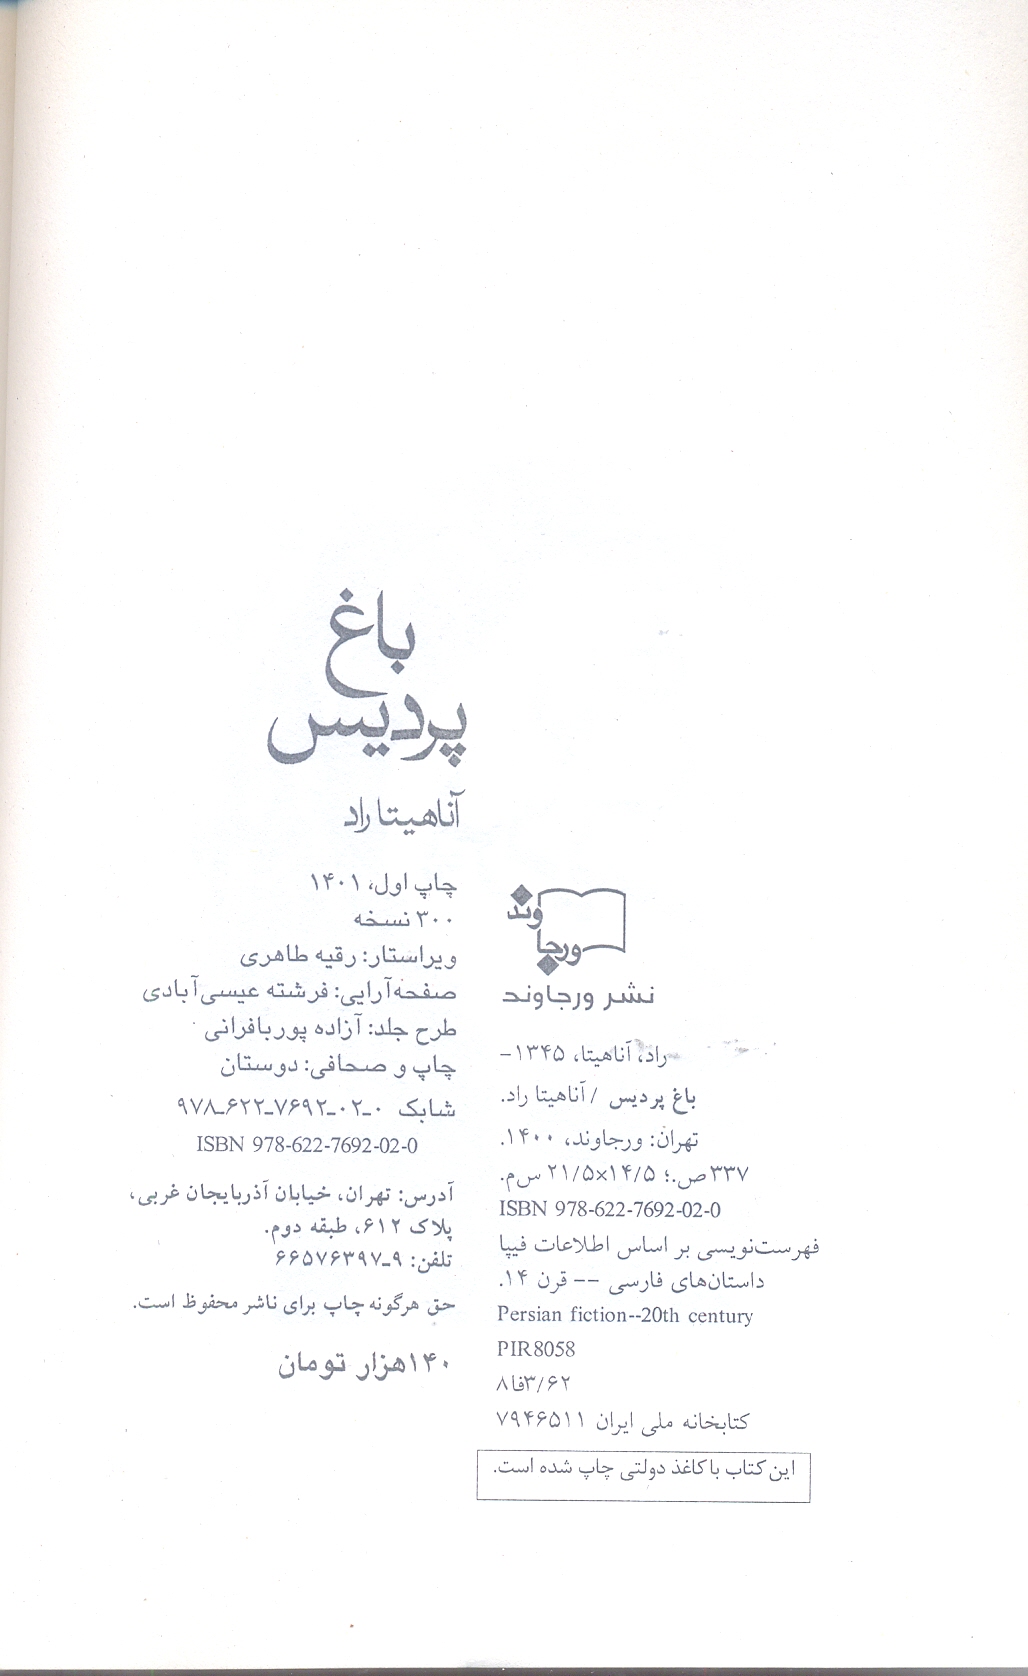 باغ
پردیس
آناهیتا راد
چاپ اول، ۱۴۰۱
۳۰۰ نسخه
ویراستار: رقیه طاهری
صفحه‌آرایی: فرشته عیسی‌آبادی
طرح جلد: آزاده پوربافرانی
چاپ و صحافی: دوستان
شابک ۰-۰۲-۷۶۹۲-۶۲۲-۹۷۸
ISBN 978-622-7692-02-0
آدرس: تهران، خیابان آذربایجان غربی،
پلاک ۶۱۲، طبقه دوم.
تلفن: ۹-۶۶۵۷۶۳۹۷
حق هرگونه چاپ برای ناشر محفوظ است.
۱۴۰هزار تومان
ورجاوند
نشر ورجاوند
راد، آناهیتا، ۱۳۴۵-
باغ پردیس / آناهیتا راد.
تهران: ورجاوند، ۱۴۰۰.
۳۳۷ص.؛ ۲۱/۵×۱۴/۵ س‌م.
ISBN 978-622-7692-02-0
فهرست‌نویسی بر اساس اطلاعات فیپا
داستان‌های فارسی -- قرن ۱۴.
Persian fiction--20th century
PIR8058
۸فا۳/۶۲
کتابخانه ملی ایران ۷۹۴۶۵۱۱
این کتاب با کاغذ دولتی چاپ شده است.